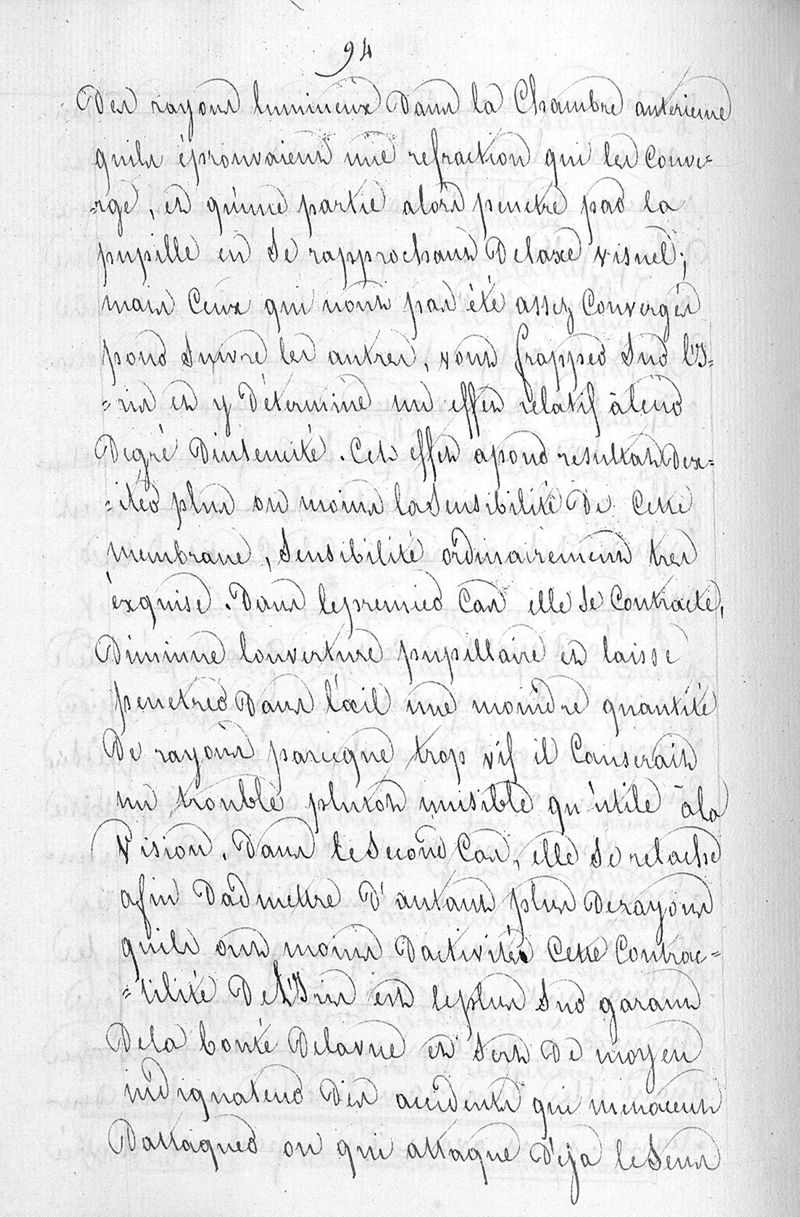 94
Des rayons lumineux Dans la Chambre anterieure
quils éprouvaient une refraction qui les Conve-
-rge, et qu'une partie alors penetre par la
pupille en Se rapprochant Delaxe visuel;
mais Ceux qui nont pas été assez Convergés
pour Suivre les autres, vont frapper Sur l'I-
-ris et y Détermine un effet relatif àleur
Degré Dintensité. Cet effet apour resultat Dex-
-iter plus ou moins laSensibilité De Cette
membrane, Sensibilité ordinairement tres
éxquise. Dans lepremier Cas elle Se Contracte,
Diminue louverture pupillaire et laisse
penetrer Dans l'œil une moindre quantité
De rayons parceque trop vif il Causerait
un trouble plutot nuisible qu'utile àla
Vision. Dans leSecond Cas, elle Se relache
afin Dadmettre D'autant plus Derayons
quils ont moins Dactivité. Cette Contrac-
-tilité De l'Iris est leplus Sur garant
Dela bonté Delavue et Sert De moyen
indignateur Des accidents qui menacent
Dattaquer ou qui attaque Déja leSens